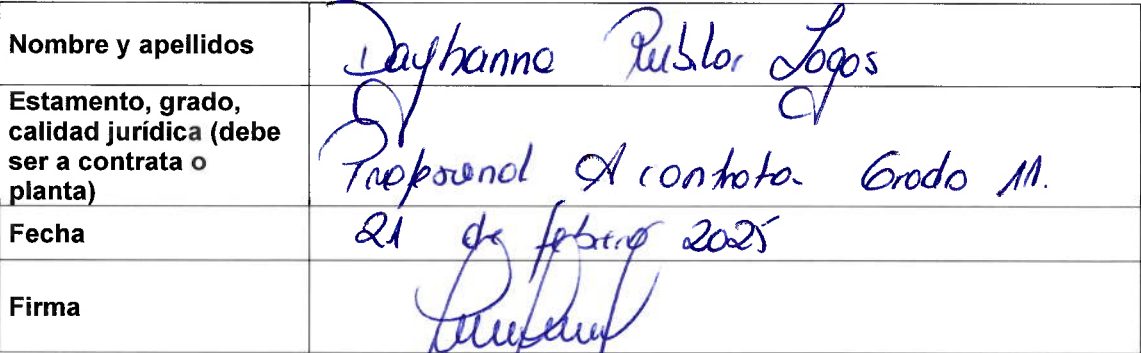 Nombre y apellidos
Dayhanna Rubilar Lagos
Estamento, grado,
calidad jurídica (debe
ser a contrata o
planta)
Profesional A contrata. Grado 11.
Fecha
21 de febrero 2025
Firma